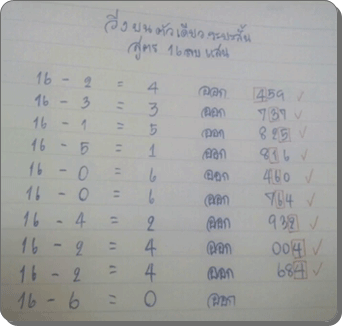 วิ่งบนตัวเดียวระยะสั้น
สูตร 16 ลบแสน
16 - 2 = 4 ออก 459 ✓
16 - 3 = 3 ออก 737 ✓
16 - 1 = 5 ออก 825 ✓
16 - 5 = 1 ออก 816 ✓
16 - 0 = 6 ออก 460 ✓
16 - 0 = 6 ออก 764 ✓
16 - 4 = 2 ออก 932 ✓
16 - 2 = 4 ออก 004 ✓
16 - 2 = 4 ออก 684 ✓
16 - 6 = 0 ออก